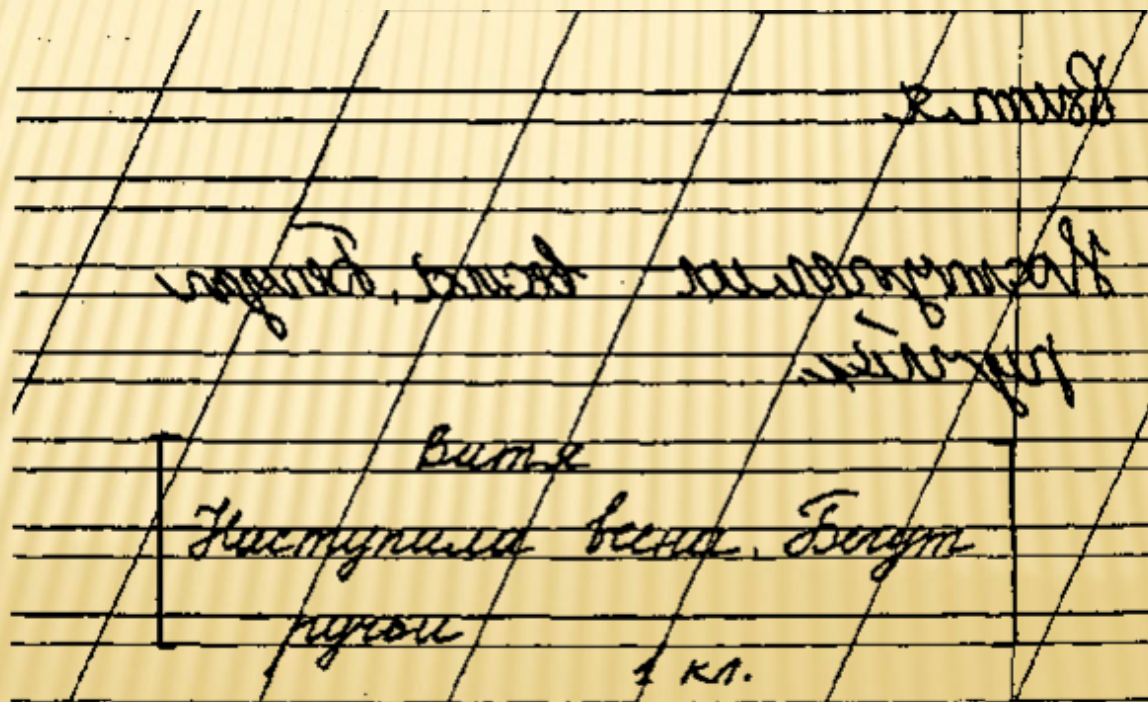 Витя.
Наступила весна. Бегут
Витя
Наступила весна. Бегут
ручьи
1 кл.